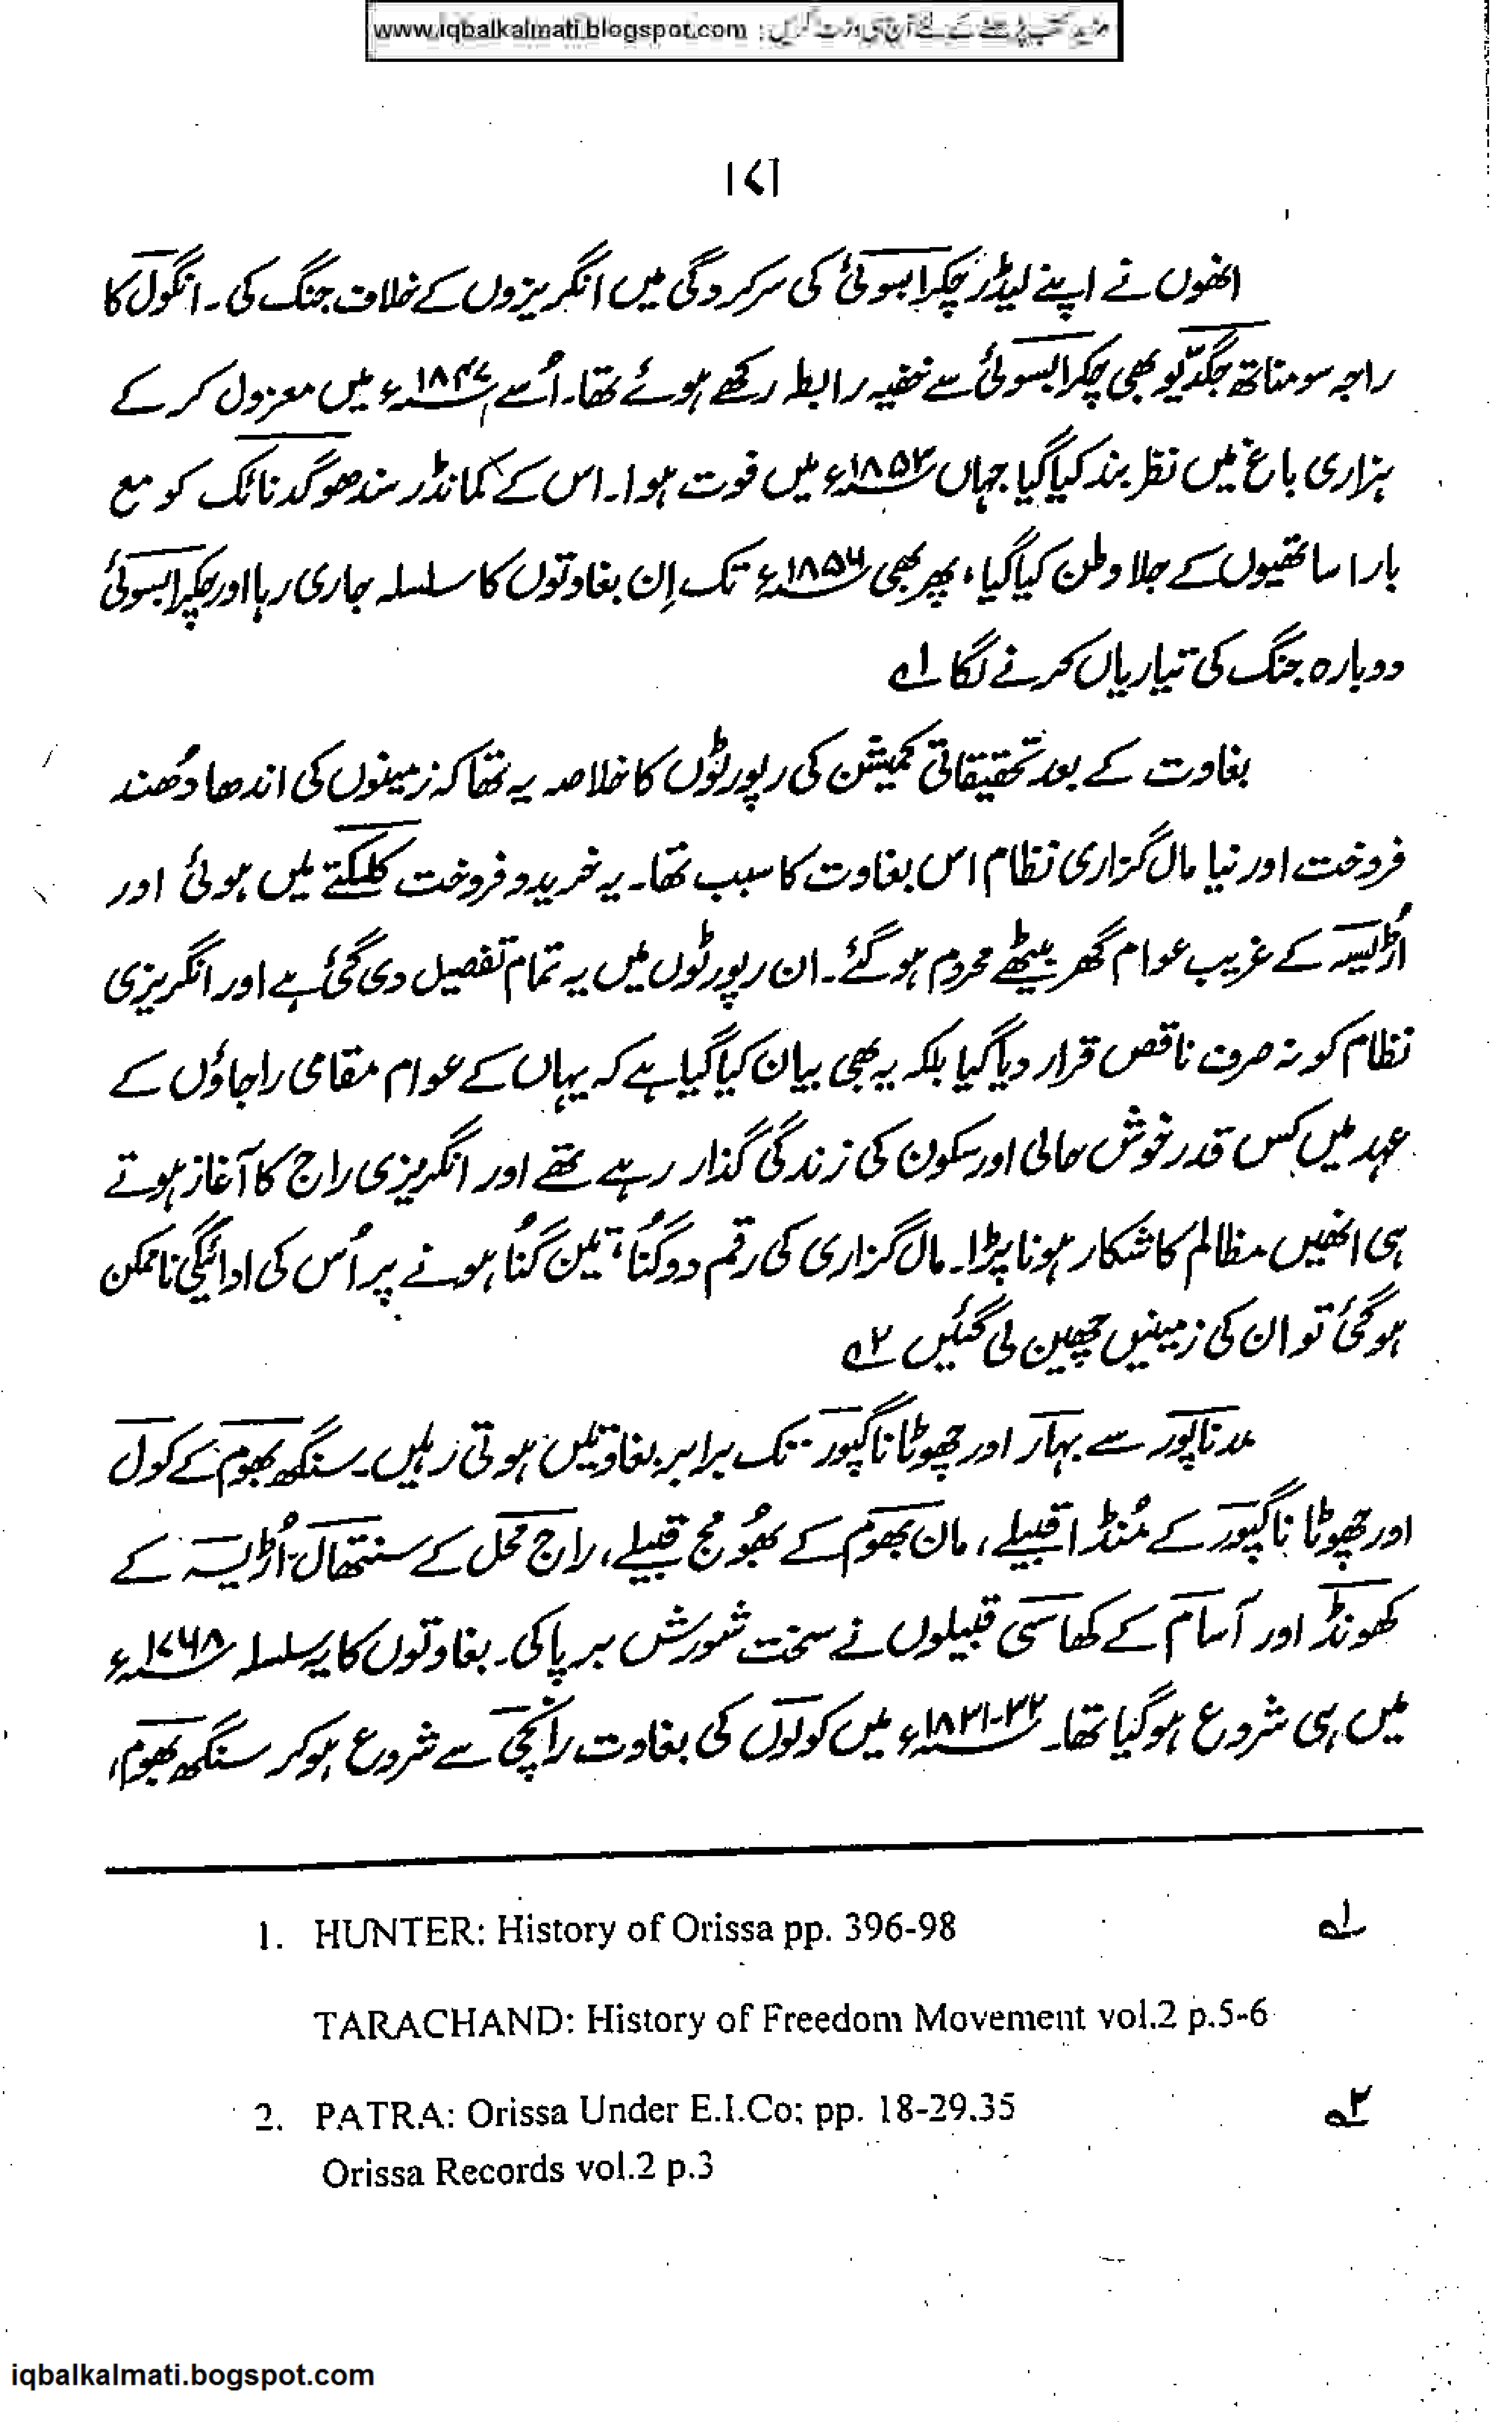 www.iqbalkalmati.blogspot.com : مزید کتب پڑھنے کے لئے آج ہی وزٹ کریں
۱۷۱
انھوں نے اپنے لیڈر چکرابسوئی کی سرکردگی میں انگریزوں کے خلاف جنگ کی۔ انگول کا
راجہ سومناتھ جگدیو بھی چکرابسوئی سے خفیہ رابطہ رکھے ہوئے تھا۔ اُسے ۱۸۴۷ء میں معزول کر کے
ہزاری باغ میں نظر بند کیا گیا جہاں ۱۸۵۲ء میں فوت ہوا۔ اس کے کمانڈر مندھوگدنائک کو مع
بارا ساتھیوں کے جلا وطن کیا گیا، پھر بھی ۱۸۵۶ء تک اِن بغاوتوں کا سلسلہ جاری رہا اور چکرابسوئی
دوبارہ جنگ کی تیاریاں کرنے لگا ۱ے
بغاوت کے بعد تحقیقاتی کمیشن کی رپورٹوں کا خلاصہ یہ تھا کہ زمینوں کی اندھا دُھند
فروخت اور نیا مال گزاری نظام اس بغاوت کا سبب تھا۔ یہ خرید و فروخت کلکتے میں ہوئی اور
اُڑیسہ کے غریب عوام گھر بیٹھے محروم ہو گئے۔ ان رپورٹوں میں یہ تمام تفصیل دی گئی ہے اور انگریزی
نظام کو نہ صرف ناقص قرار دیا گیا بلکہ یہ بھی بیان کیا گیا ہے کہ یہاں کے عوام مقامی راجاؤں کے
عہد میں کس قدر خوش حالی اور سکون کی زندگی گذار رہے تھے اور انگریزی راج کا آغاز ہوتے
ہی انھیں مظالم کا شکار ہونا پڑا۔ مال گزاری کی رقم دو گنُا، تین گنُا ہونے پر اُس کی ادائگی ناممکن
ہو گئی تو ان کی زمینیں چھین لی گئیں ۲ے
مدناپور سے بہار اور چھوٹا ناگپور تک برابر بغاوتیں ہوتی رہیں۔ سنگھ بھوم کے کول
اور چھوٹا ناگپور کے مُنڈا قبیلے، مان بھوم کے بھُومج قبیلے، راج محل کے سنتھال، اُڑیسہ کے
کھونڈ اور آسام کے کھاسی قبیلوں نے سخت شورش برپا کی۔ بغاوتوں کا یہ سلسلہ ۱۷۶۸ء
میں ہی شروع ہو گیا تھا۔ ۳۲-۱۸۳۱ء میں کولوں کی بغاوت رانچی سے شروع ہو کر سنگھ بھوم،
1. HUNTER: History of Orissa pp. 396-98 ۱ے
TARACHAND: History of Freedom Movement vol.2 p.5-6
2. PATRA: Orissa Under E.I.Co; pp. 18-29.35 ۲ے
Orissa Records vol.2 p.3
iqbalkalmati.bogspot.com